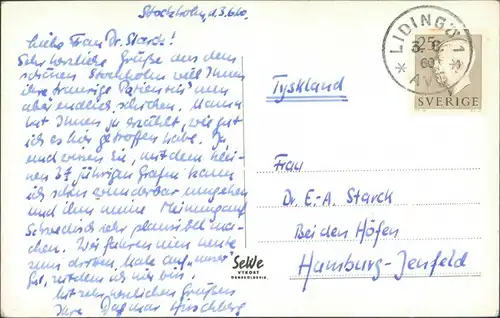 Stockholm, d. 3.6.60.
Liebe Frau Dr. Starck!
Sehr herzliche Grüße aus dem
schönen Stockholm will Ihnen
ihre traurige Patientin nun
aber endlich schicken. Mama
hat Ihnen ja erzählt, wie gut
ich es hier getroffen habe. Ja
und wissen Sie, mit dem klei-
nen 27 jährigen Grafen kann
ich schon wunderbar umgehen
und ihm meine Meinung auf
Schwedisch sehr plausibel ma-
chen. Wir fahren nun heute
zum dorben, Male auf "unser"
Gut, nachdem ich hier bin.
Mit sehr herzlichen Grüßen
Ihre Dagmar Hirschberg
LIDINGÖ 1
60
AVG
SVERIGE
Tyskland
Frau
Dr. E.-A. Starck
Bei den Höfen
Hamburg-Jenfeld
SeWe
VYKORT